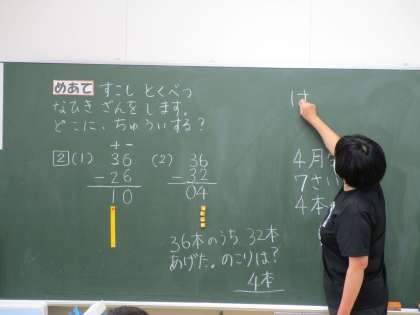 めあて すこし とくべつ
なひきざんをします。
どこに、ちゅういする?
2 (1)
+ -
36
-26
10
(2)
36
-32
04
36本のうち 32本
あげた。のこりは?
4本
け
4月
7さい
4本